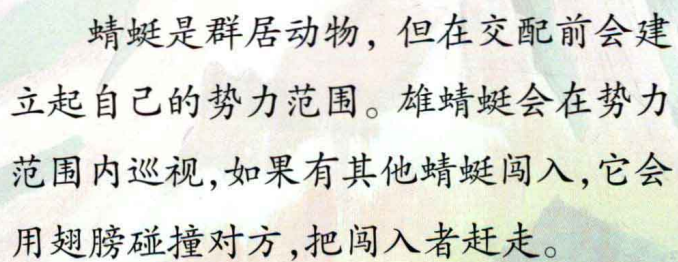 蜻蜓是群居动物，但在交配前会建
立起自己的势力范围。雄蜻蜓会在势力
范围内巡视，如果有其他蜻蜓闯入，它会
用翅膀碰撞对方，把闯入者赶走。